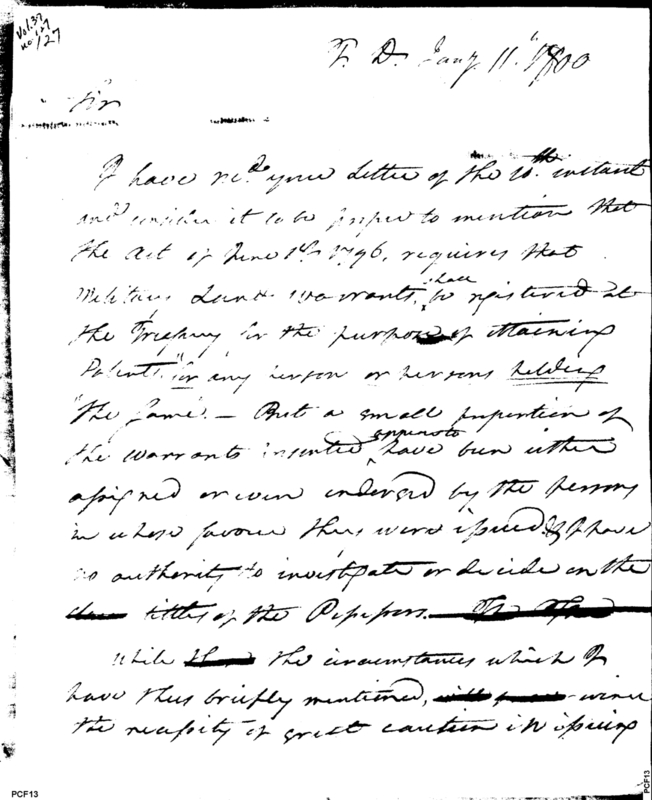 Vol. 37
no. 127
127
T. D. Jany. 11th 1800
Sir
I have recd. your Letter of the 10th. instant
and consider it to be proper to mention that
the Act of June 1st. 1796, requires that
Military Land warrants, shall be registered at
the Treasury for the purpose of obtaining
Patents "for any person or persons holding
"the same". — But a small proportion of
the warrants presented have been either
assigned or even endorsed by the persons
in whose favour they were issued, & I have
no authority to investigate or decide on the
titles of the Possessors.
While the circumstances which I
have thus briefly mentioned, evince
the necessity of great caution in issuing
PCF13
PCF13